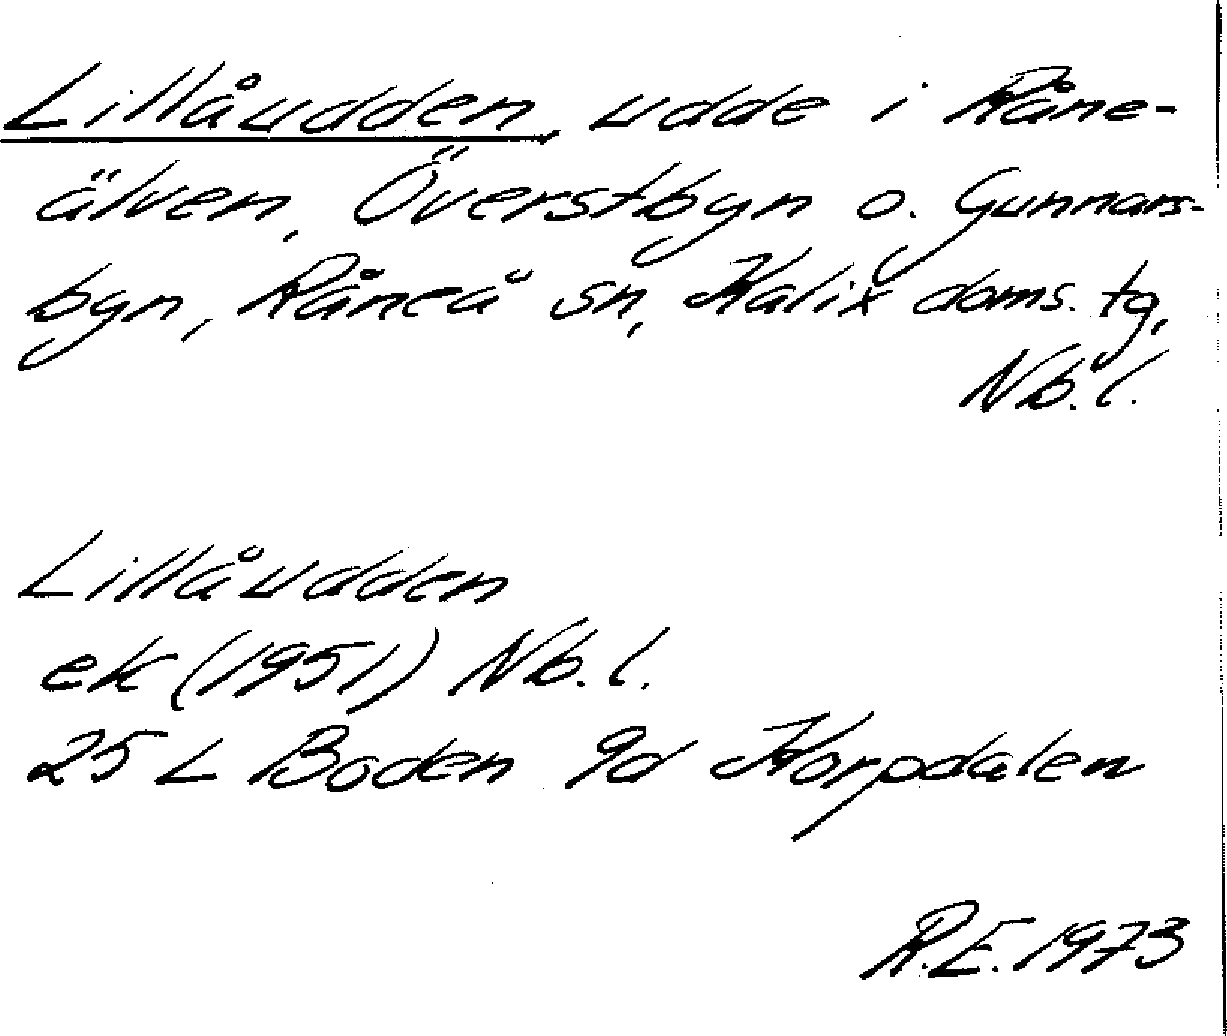 Lillåudden, udde i Råne-
älven, Överstbyn o. Gunnars-
byn, Råneå sn, Kalix doms. tg,
Nb. l.
Lillåudden
ek (1951) Nb. l.
25 L Boden 9d Korpdalen
R.E. 1973